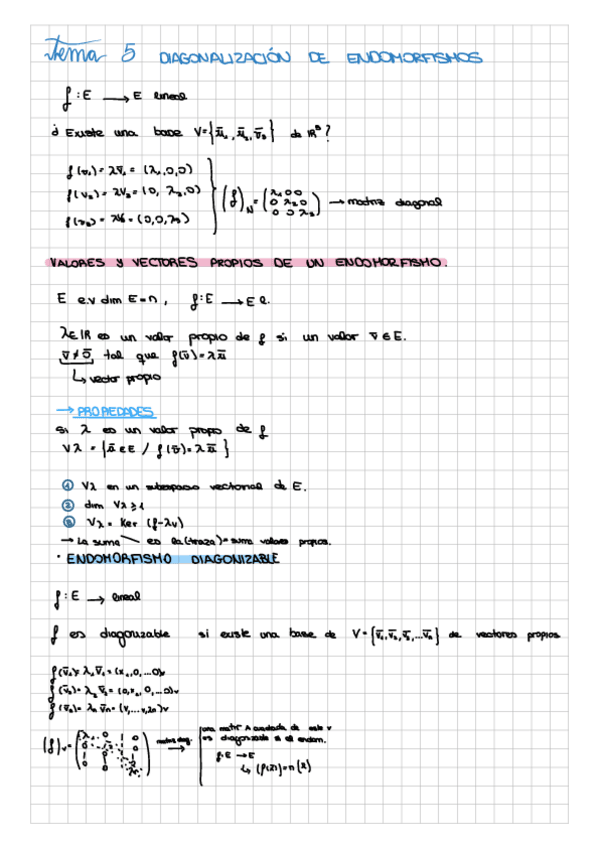 Tema 5 DIAGONALIZACIÓN DE ENDOMORFISMOS
f : E → E lineal
¿ Existe una base V = {v̄₁, v̄₂, v̄₃} de ℝ³?
f(v₁) = λv̄₁ = (λ₁,0,0)
f(v₂) = λv̄₂ = (0, λ₂,0)
f(v₃) = λv̄₃ = (0,0,λ₃)
(f)N = (λ₁ 0 0
0 λ₂ 0
0 0 λ₃) → matriz diagonal
VALORES y VECTORES PROPIOS DE UN ENDOMORFISMO.
E e.v dim E = n , f : E → E l.
λ ∈ ℝ es un valor propio de f si un valor v̄ ∈ E.
v̄ ≠ 0̄ tal que f(ū) = λū
↳ vector propio
→ PROPIEDADES
si λ es un valor propio de f
Vλ = {ū ∈ E / f(ū) = λū }
① Vλ en un subespacio vectorial de E.
② dim Vλ ≥ 1
③ Vλ = Ker (f-λv)
→ La suma es la (traza) = suma valores propios.
· ENDOMORFISMO DIAGONIZABLE
f : E → lineal
f es diagonizable si existe una base de V = {v̄₁, v̄₂, v̄₃, ... v̄ₙ} de vectores propios
f(v̄₁) = λ₁v̄₁ = (λ₁, 0, ...0)v
f(v̄₂) = λ₂v̄₂ = (0, λ₂, 0, ...0)v
f(v̄ₙ) = λₙv̄ₙ = (
(f)v = matriz diag. →
una matriz A cuadrada de
es diagonizable si el endom.
f : E → E